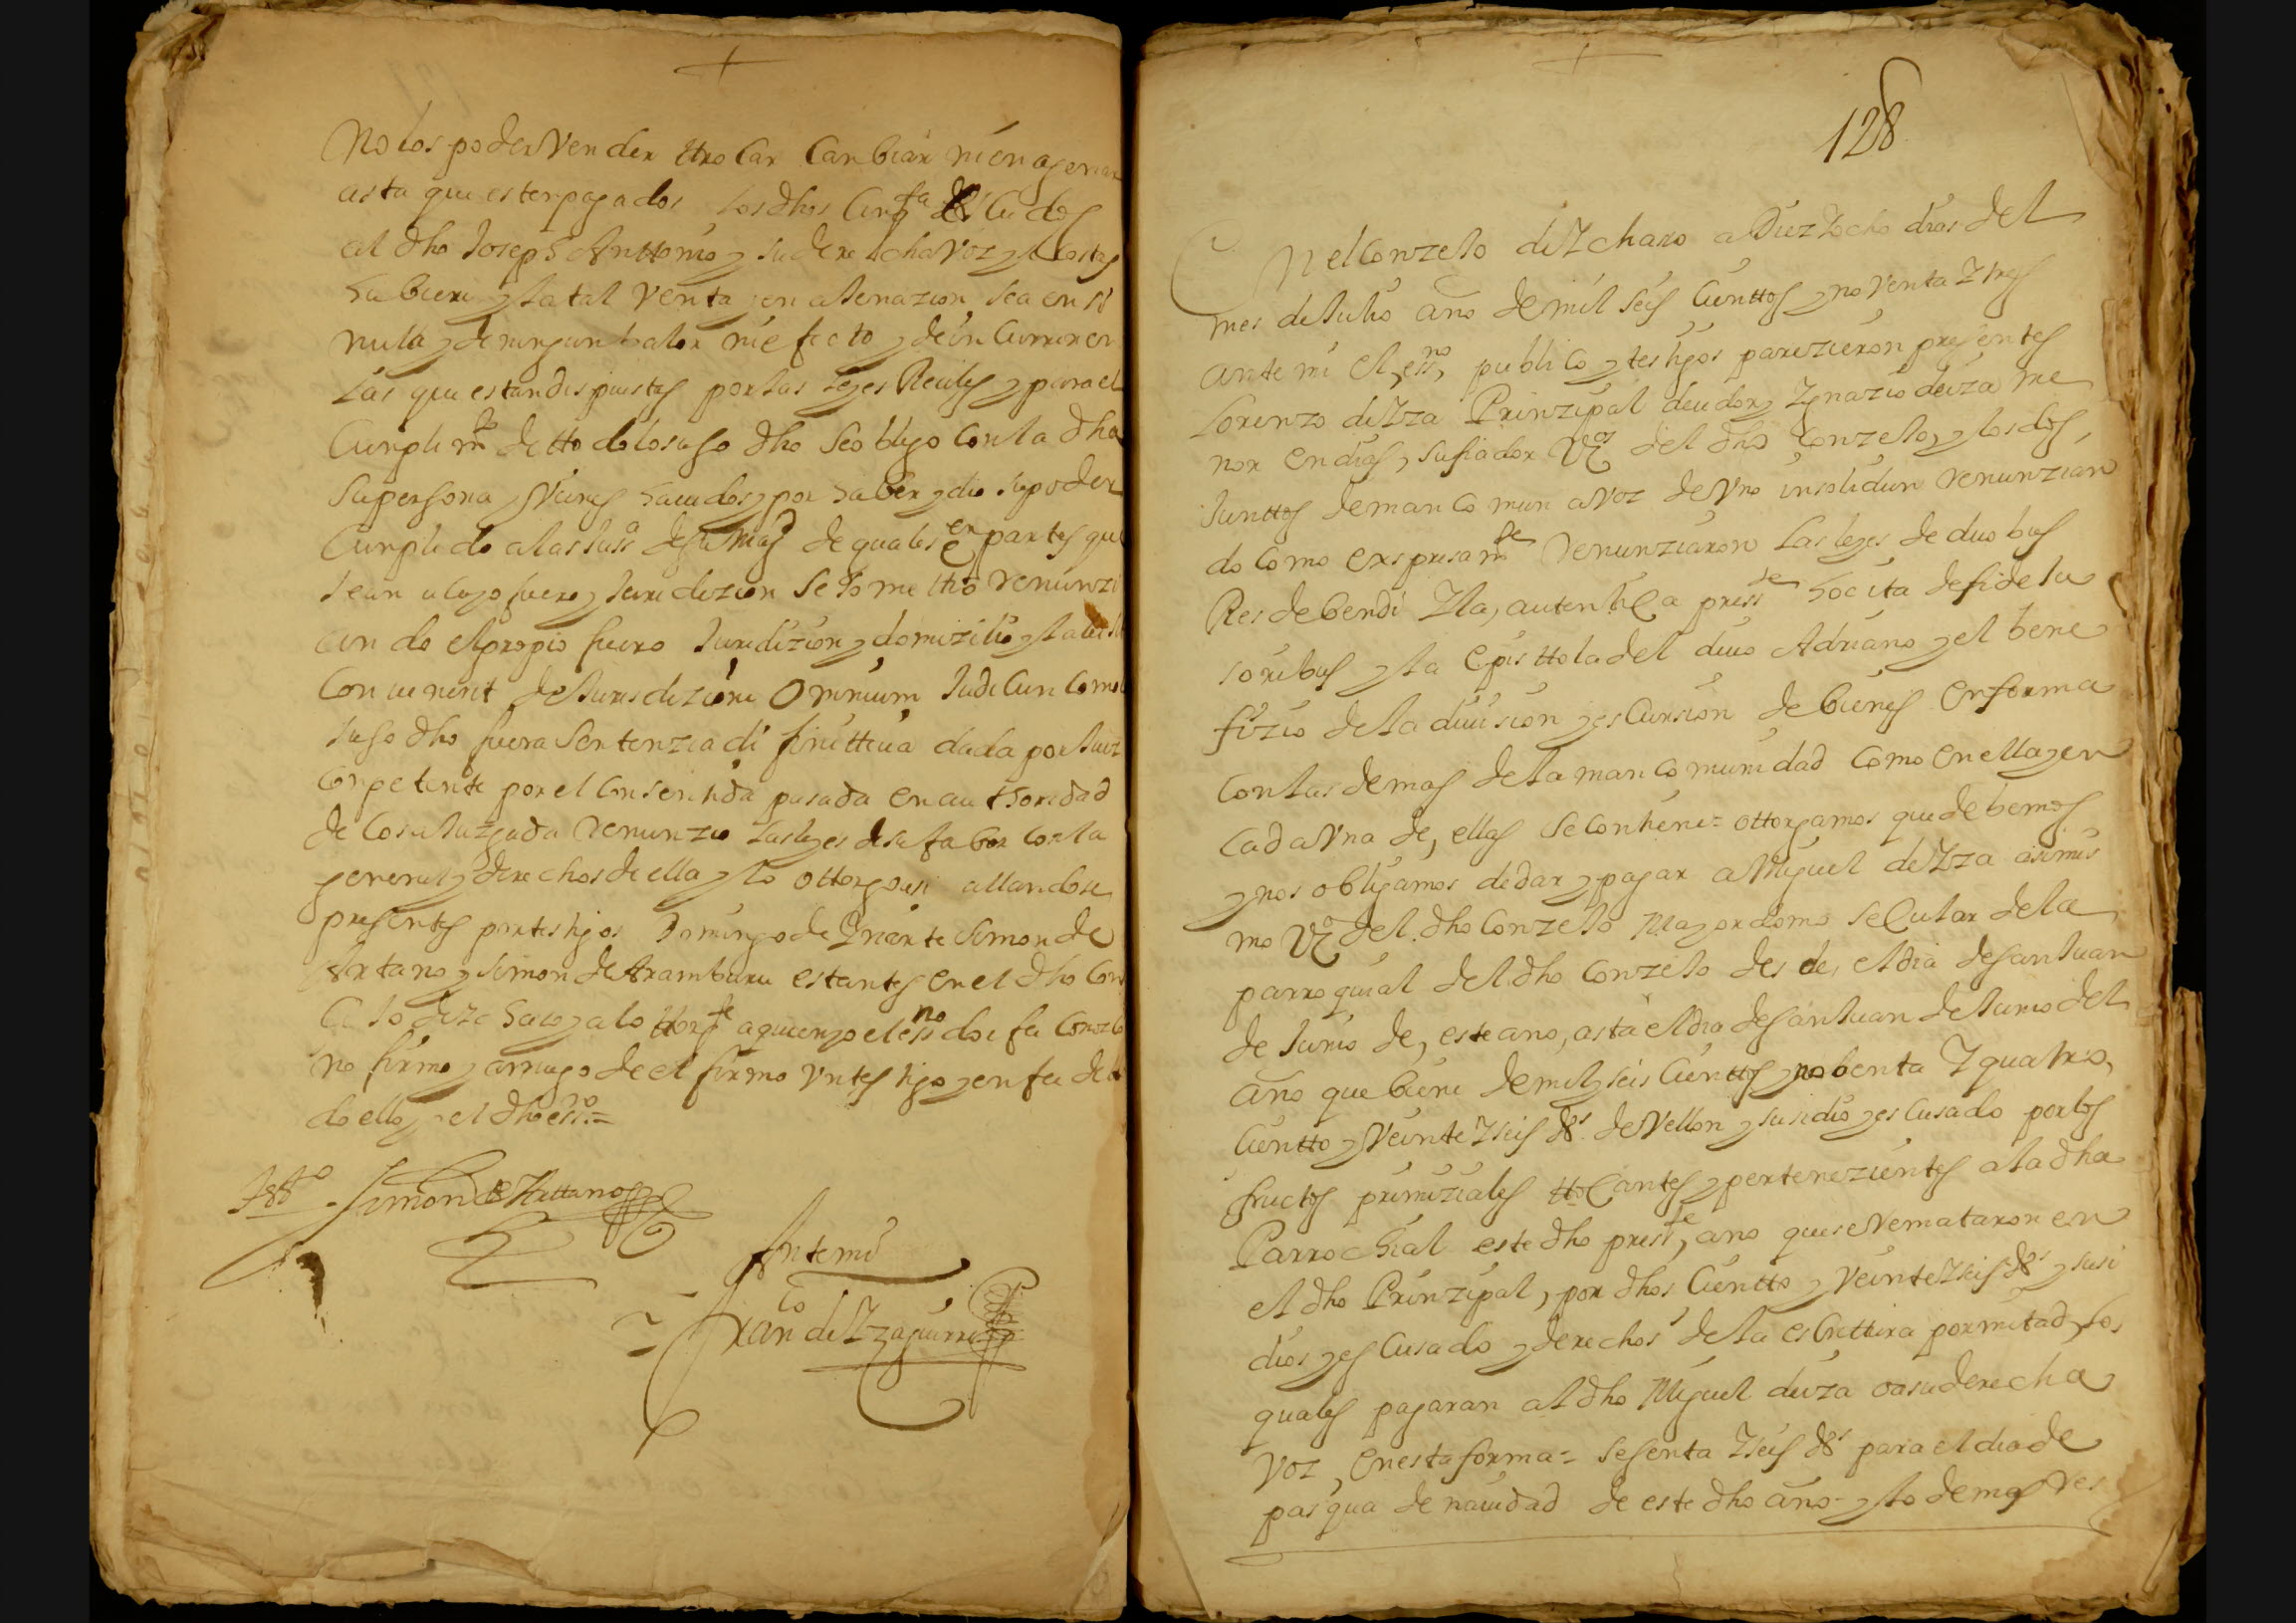 No los poder Vender ttrocar Canbiar ni en agenar
asta que esten pagados los dhos Cinqta ds Cu dos
al dho Joseph Anttonio y su derecho ha Voz y Costas
hubiere y la tal Venta y en a lenazion sea en si
nula y de ningun balor ni efecto y de in Currir en
las que estan dispuestas por las leyes Reales y para el
Cunplimto de tto do lo suso dho se obligo con la dha
Su persona y Vienes hauidos y por haber y dio su poder
Cunplido a las Juss de su Magd de quales er partes que
sean a cuyo fuero y Juridizion se so me ttio renunzi
an do el propio fuero Juridizion y domizilio y la ley si
Con uenerit de Jurisdizione Omnium Judicun como si
suso dho fuera Sentenzia di finittiua dada por Juez
Conpetente por el Consentida pasada en aut thoridad
de Cosa Juzgada renunzio las leyes de su fabor con la
general y derechos de ella y lo ottorgo asi allandose
presentes por testigos Domingo de Iriarte Simon de
Artano y Simon de Aramburu estantes en el dho Con
Ce Jo de Ic haso y a lo ttorgte a quien yo el essno doi fe Conozco
no firmo y a rruego de el firmo Vn tes tigo y en fee de to
do ello yo el dho essno =
Tsto Simon de Hattano
Ante mi
Franco de Yzaguirre
128
En el Conzejo de Ychaso a Diez Y ocho dias del
mes de Julio año de mil seis Cienttos y no Venta Y tres
ante mi el, essno, publico y testigos parezieron presentes
Lorenzo de Yza Prinzipal deudor y Ygnazio de iza me
nor en dias, su fiador Vzos del dho Conzejo, y los dos,
Junttos de man Co mun a voz de Vno insolidun renunzian
do Como expresamte renunziaron las leyes de duo bus
Res debendi Y la, autentica presste hoc ita de fide Ju
soribus y la Episttola del diuo Adriano y el bene
fizio de la diuision y es Cursion de bienes en forma
con las demas de la man Comunidad Como en ella y en
cada Vna de, ellas se contiene = ottorgamos que debemos
y nos obligamos de dar y pagar a Miguel de Yza asimis
mo Vzo del dho Conzejo Mayordomo se Cular de la
parroquial del dho conzejo des de, el dia de san Juan
de Junio de, este ano, asta el dia de san Juan de Junio del
año que biene de mil y seis Cienttos y nobenta Y quatro,
Cientto y Veinte Y seis ds de Vellon y susidio y es Cusado por los
fructos primiziales ttocantes y pertenezientes a la dha
Parrochial este dho presste, ano que se remataron en
el dho Prinzipal, por dhos Cientto y Veinte Y seis ds y susi
dios y es Cusado y derechos de la escrittura por mitad, los
quales pagaran al dho Miguel de iza o a su derecha
Voz, en esta forma = sesenta Y seis ds para el dia de
pasqua de nauidad de este dho año = y lo demas res